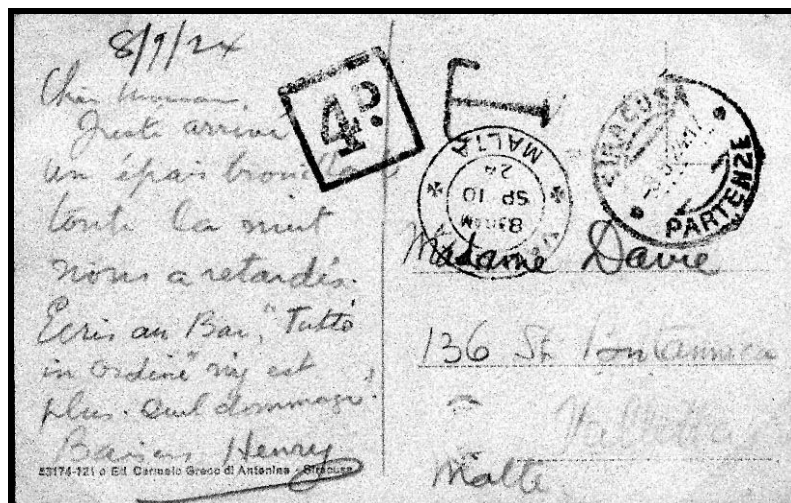 8/9/24
Juste arrivé
un épais brouillard
toute la nuit
nous a retardés.
Ecris au Bar, "Tutto
in ordine" n'y est
plus. quel dommage.
Baisers Henry
83174-121 o Ed. Carmelo Greco di Antonino - Siracusa
4D.
T
MALTA
8 30 AM
SP 10
24
SIRACUSA
PARTENZE
Madame Davie
136 St.
Valletta
Malte